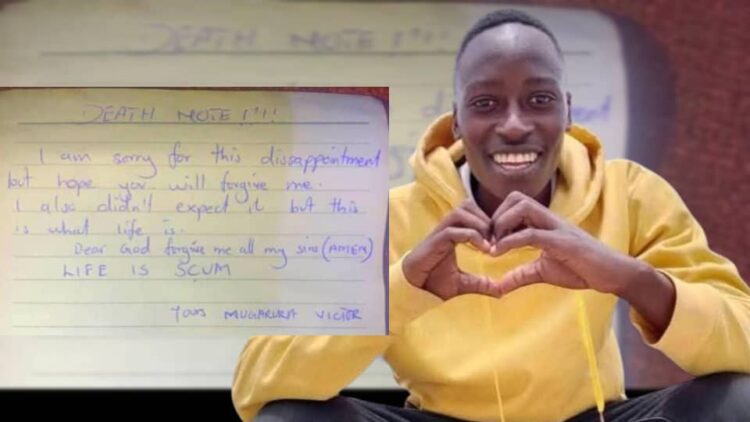 DEATH NOTE !!!!
I am sorry for this dissappointment
but hope you will forgive me.
I also didn't expect it but this
is what life is.
Dear God forgive me all my sins (AMEN)
LIFE IS SCUM
Yours MUGARURA VICTER